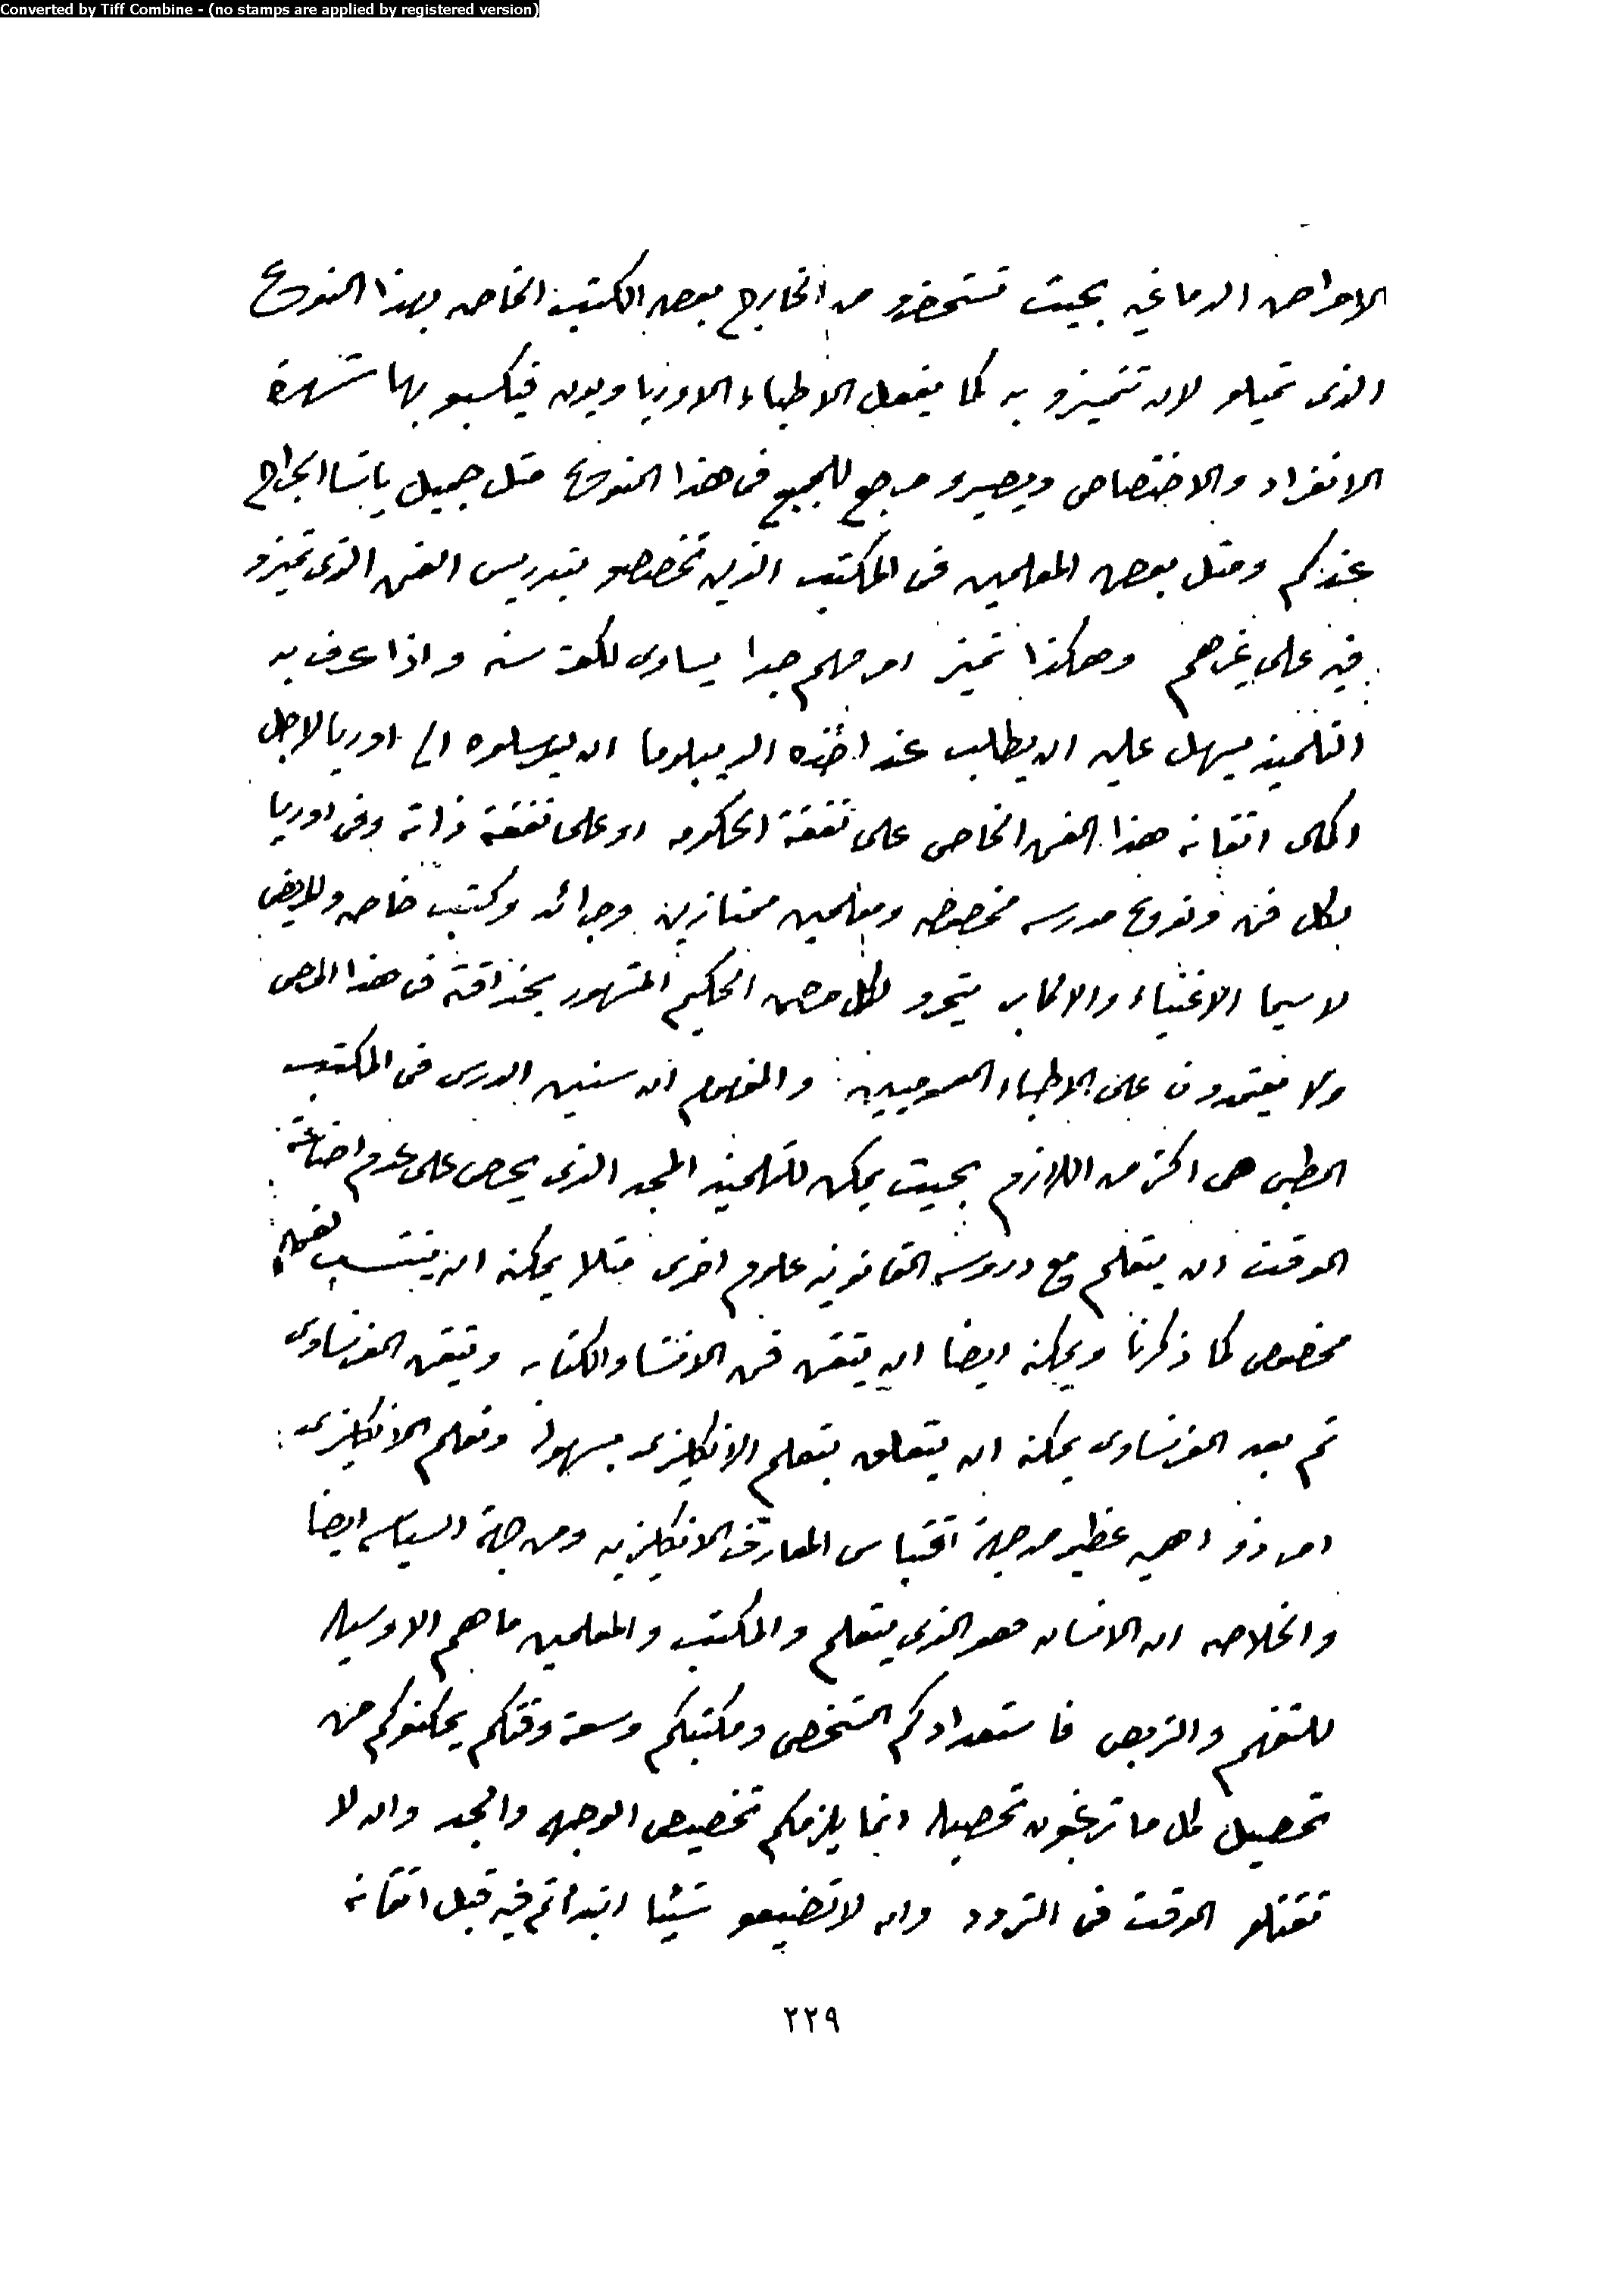 Converted by Tiff Combine - (no stamps are applied by registered version)
الامراض الدماغيه بحيث تستحضرو من الخارج بعض الكتب الخاصه بهذا النوع
الذى تميلو لان تتميزو به كما يفعل الاطباء الاوربا ويون فيكسبو بها شهرة
الانفراد والاختصاص ويصيرو مرجع للجميع فى هذا النوع مثل جميل باشا الجراح
عندكم ومثل بعض المعلمين فى المكتب الذين تخصصو بتدريس الفن الذى تميزو
فيه على غيرهم وهكذا تميز امر مهم جدا يساوى لكفة سنه واذا عرف به
التلميذ يسهل عليه ان يطلب عند اخذه الديبلوما ان يرسلوه الى اوربا لاجل
اكمال اتقانه هذا الفن الخاص على نفقة الحكومه او على نفقة ذاته وفى اوربا
لكل فن ونوع مدرسه مخصوصه ومعلمين ممتازين وجرائد وكتب خاصه والمريض
لاسيما الاغنياء والاكابر يتحرو لكل مرض الحكيم المشهور بحذاقته فى هذا المرض
ولا يعتمدون على الاطباء العموميين والمفهوم ان سنين الدرس فى المكتب
الطبى هى اكثر من اللازم بحيث يمكن للتلميذ المجد الذى يحرص على عدم اضاعة
الوقت ان يتعلم مع دروسه القانونيه علوم اخرى مثلا يمكنه ان ينتسب لفن
مخصوص كما ذكرنا ويمكنه ايضا ان يتقن فن الانشا والكتابه ويتقن الفرنساوى
ثم بعد الفرنساوى يمكنه ان يتعلق بتعلم الانكليزى بسهولة وتعلم الانكليزى
امر ذو اهميه عظيمه من جهة اقتباس المعارف الانكليزيه ومن جهة السياسه ايضا
والخلاصه ان الانسان هو الذى يتعلم والمكتب والمعلمين ما هم الا وسيله
للتفهم والتربص فاستعدادكم الشخصى ومكتبكم وسعة وقتكم يمكنوكم من
تحصيل كل ما ترغبون تحصيله انما يلزمكم تخصيص الوجهه والجد وان لا
تقتلو الوقت فى التردد وان لا تضيعو شيئا ابتدأتم فيه قبل اتقانه
٢٢٩